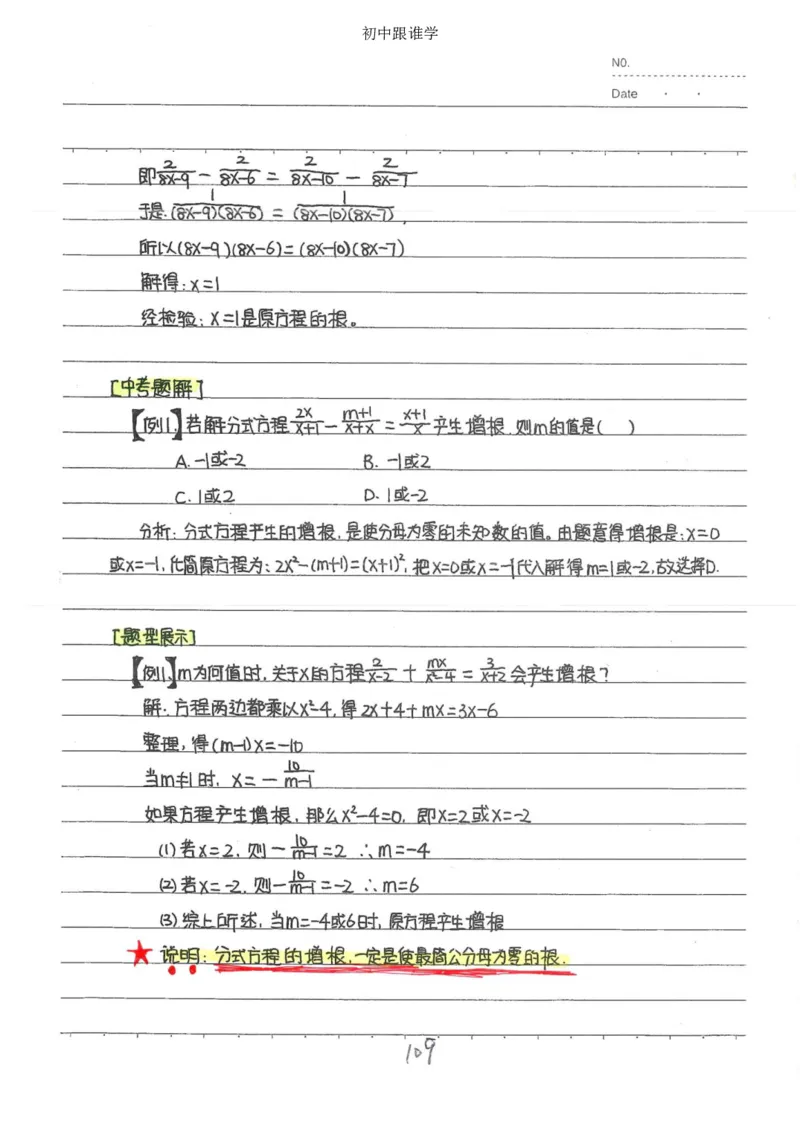 初中跟谁学
N0.
Date · ·
即 2/(8x-9) - 2/(8x-6) = 2/(8x-10) - 2/(8x-7)
于是. 1/((8x-9)(8x-6)) = 1/((8x-10)(8x-7)).
所以(8x-9)(8x-6)=(8x-10)(8x-7)
解得:x=1
经检验:x=1是原方程的根。
[中考题解]
【例1.】若解分式方程 2x/(x+1) - (m+1)/(x+x) = (x+1)/x 产生增根,则m的值是( )
A. -1或-2 B. -1或2
C. 1或2 D. 1或-2
分析:分式方程产生的增根,是使分母为零的未知数的值。由题意得增根是:x=0
或x=-1,化简原方程为:2x²-(m+1)=(x+1)²,把x=0或x=-1代入解得m=1或-2,故选择D.
[题型展示]
【例1.】m为何值时,关于x的方程 2/(x-2) + mx/(x²-4) = 3/(x+2) 会产生增根?
解:方程两边都乘以x²-4,得2x+4+mx=3x-6
整理,得(m-1)x=-10
当m≠1时, x= - 10/(m-1)
如果方程产生增根,那么x²-4=0, 即x=2或x=-2
(1)若x=2, 则- 10/(m-1) =2 ∴m=-4
(2)若x=-2, 则- 10/(m-1) =-2 ∴m=6
(3)综上所述,当m=-4或6时,原方程产生增根
★ 说明:分式方程的增根,一定是使最简公分母为零的根.
109